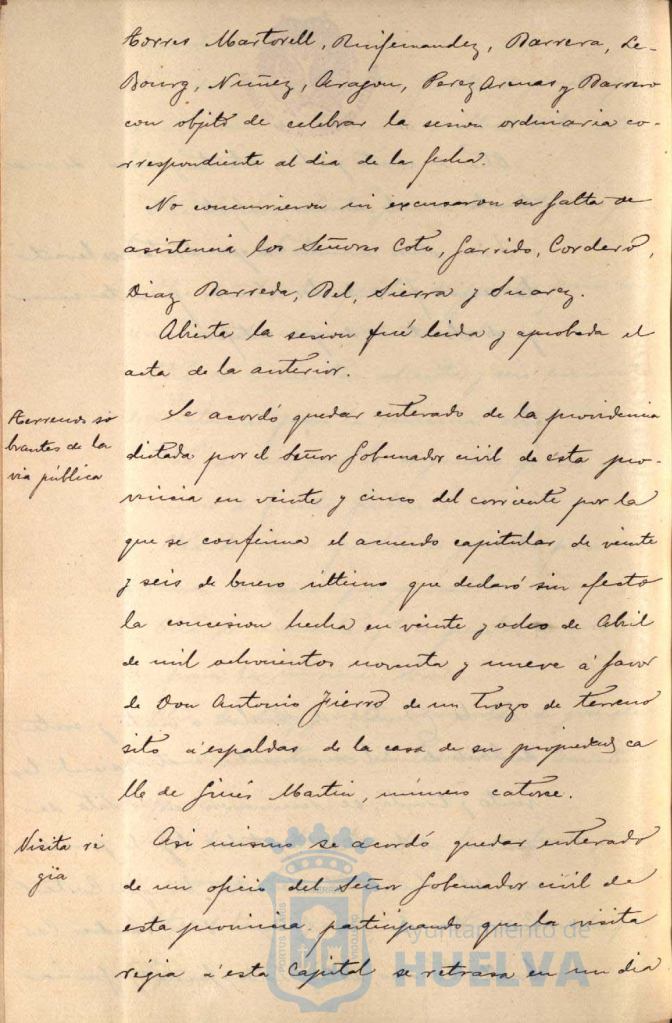 Torres Martorell, Ruifernandez, Barrera, Le-
Bourg, Nuñez, Aragon, Perez Arenas y Barrero
con objeto de celebrar la sesion ordinaria co-
rrespondiente al dia de la fecha.
No concurrieron ni excusaron su falta de
asistencia los Señores Coto, Garrido, Cordero,
Diaz Barreda, Bel, Sierra y Suarez.
Abierta la sesion fué leida y aprobada el
acta de la anterior.
Terrenos so
brantes de la
via pública
Se acordó quedar enterado de la providencia
dictada por el Señor Gobernador civil de esta pro-
vincia en veinte y cinco del corriente por la
que se confirma el acuerdo capitular de veinte
y seis de Enero último que declaró sin efecto
la concesion hecha en veinte y ocho de Abril
de mil ochocientos noventa y nueve á favor
de Don Antonio Fierro de un trozo de terreno
sito á espaldas de la casa de su propiedad ca
lle de Ginés Martin, número catorse.
Visita ré
gia
Asi mismo se acordó quedar enterado
de un oficio del Señor Gobernador civil de
esta provincia participando que la visita
régia á esta Capital se retrasa en un dia
Ayuntamiento de
HUELVA